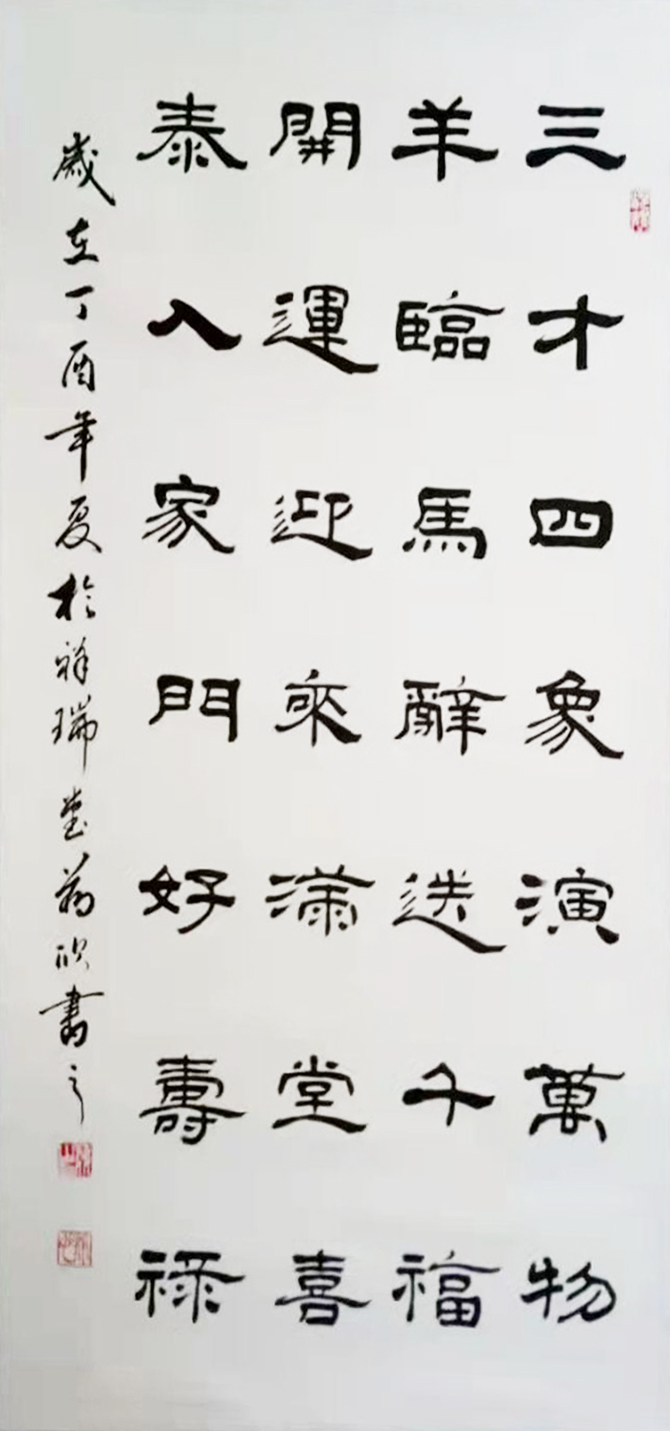 三才四象演萬物
羊臨馬辭送千福
開運迎來滿堂喜
泰入家門好壽祿
歲在丁酉年夏於祥瑞堂
欣書之